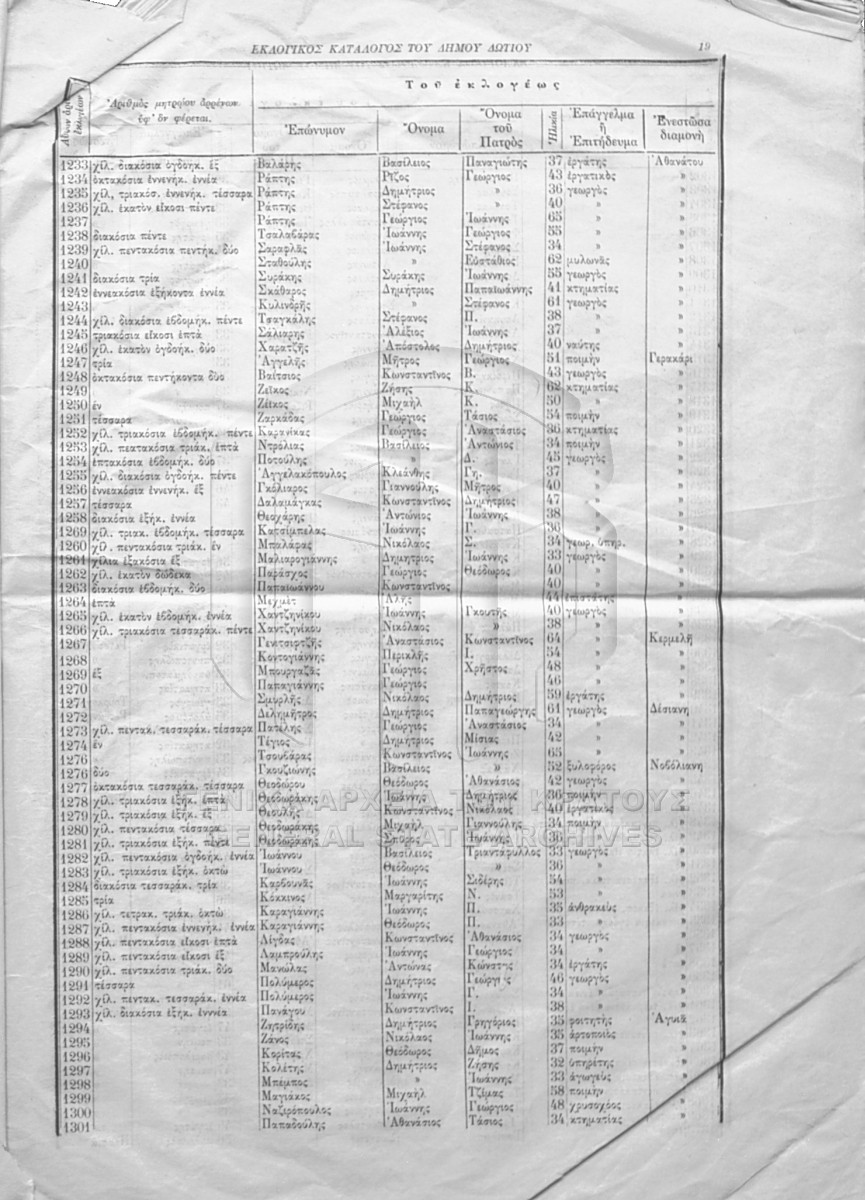 ΕΚΛΟΓΙΚΟΣ ΚΑΤΑΛΟΓΟΣ ΤΟΥ ΔΗΜΟΥ ΔΩΤΙΟΥ 19
Τοῦ ἐκλογέως
Ἀριθμὸς μητρῴου ἀρρένων ἐφ' ὃν φέρεται. Ἐπώνυμον Ὄνομα Ὄνομα τοῦ Πατρὸς Ἡλικία Ἐπάγγελμα ἢ Ἐπιτήδευμα Ἐνεστῶσα διαμονὴ
1233 χίλ. διακόσια ὀγδοήκ. ἐξ Βαλάρης Βασίλειος Παναγιώτης 37 ἐργάτης Ἀθανάτου
1234 ὀκτακόσια ἐννενήκ. ἐννέα Ράπτης Ρίζος Γεώργιος 43 ἐργατικὸς »
1235 χίλ, τριακόσ. ἐννενήκ. τέσσαρα Ράπτης Δημήτριος » 36 γεωργὸς »
1236 χίλ. ἑκατὸν εἴκοσι πέντε Ράπτης Στέφανος » 40 » »
1237 Ράπτης Γεώργιος Ἰωάννης 65 » »
1238 διακόσια πέντε Τσαλαβάρας Ἰωάννης Γεώργιος 55 » »
1239 χίλ. πεντακόσια πεντήκ. δύο Σαραφλᾶς Ἰωάννης Στέφανος 34 » »
1240 Σταθούλης » Εὐστάθιος 62 μυλωνᾶς »
1241 διακόσια τρία Συράκης Συράκης Ἰωάννης 55 γεωργὸς »
1242 ἐννεακόσια ἑξήκοντα ἐννέα Σκάθαρος Δημήτριος Παπαϊωάννης 41 κτηματίας »
1243 Κυλινδρῆς » Στέφανος 61 γεωργὸς »
1244 χίλ. διακόσια ἑβδομήκ. πέντε Τσαγκάλης Στέφανος Π. 38 » »
1245 τριακόσια εἴκοσι ἑπτὰ Σάλιαρης Ἀλέξιος Ἰωάννης 37 » »
1246 χίλ. ἑκατὸν ὀγδοήκ. δύο Χαρατζῆς Ἀπόστολος Δημήτριος 40 ναύτης »
1247 τρία Ἀγγελῆς Μῆτρος Γεώργιος 51 ποιμὴν Γερακάρι
1248 ὀκτακόσια πεντήκοντα δύο Βαίτσιος Κωνσταντῖνος Β. 43 γεωργὸς »
1249 Ζεῖκος Ζήσης Κ. 62 κτηματίας »
1250 ἓν Ζεῖκος Μιχαὴλ Κ. 50 » »
1251 τέσσαρα Ζαρκάδας Γεώργιος Τάσιος 54 ποιμὴν »
1252 χίλ. τριακόσια ἑβδομήκ. πέντε Καρανίκας Γεώργιος Ἀναστάσιος 36 κτηματίας »
1253 χίλ. πεατακόσια τριάκ. ἑπτὰ Ντρόλιας Βασίλειος Ἀντώνιος 34 ποιμὴν »
1254 ἑπτακόσια ἑβδομήκ. δύο Ποτούλης » Δ. 45 γεωργὸς »
1255 χίλ. διακόσια ὀγδοήκ. πέντε Ἀγγελακόπουλος Κλεάνθης Γη. 37 » »
1256 ἐννεακόσια ἐννενήκ. ἐξ Γκόλιαρος Γιαννούλης Μῆτρος 40 » »
1257 τέσσαρα Δαλαμάγκας Κωνσταντῖνος Δημήτριος 47 » »
1258 διακόσια ἑξήκ. ἐννέα Θεοχάρης Ἀντώνιος Ἰωάννης 38 » »
1269 χίλ. τριακ. ἑβδομήκ. τέσσαρα Κατσίμπελας Ἰωάννης Γ. 36 » »
1260 χίλ. πεντακόσια τριάκ. ἓν Μπαλάφας Νικόλαος Σ. 34 γεωρ. ὑπηρ. »
1261 χίλια ἑξακόσια ἐξ Μαλιαρογιάννης Δημήτριος Ἰωάννης 33 γεωργὸς »
1262 χίλ. ἑκατὸν δώδεκα Παράσχος Γεώργιος Θεόδωρος 40 » »
1263 διακόσια ἑβδομήκ. δύο Παπαϊωάννου Κωνσταντῖνος 40 » »
1264 ἑπτὰ Μεχμὲτ Ἀλῆς 44 ἐπιστάτης »
1265 χίλ. ἑκατὸν ἑβδομήκ. ἐννέα Χαντζηνίκου Ἰωάννης Γκουτῆς 40 γεωργὸς »
1266 χίλ. τριακόσια τεσσαράκ. πέντε Χαντζηνίκου Νικόλαος » 38 » »
1267 Γενιτσιφτζῆς Ἀναστάσιος Κωνσταντῖνος 64 » Κερμελῆ
1268 Κοντογιάννης Περικλῆς Ι. 54 » »
1269 ἐξ Μπουργαζᾶς Γεώργιος Χρῆστος 48 » »
1270 Παπαγιάννης Γεώργιος 46 » »
1271 Σμυρλῆς Νικόλαος Δημήτριος 59 ἐργάτης »
1272 Δεληµῆτρος Δημήτριος Παπαγεώργης 61 γεωργὸς Δέσιανη
1273 χίλ. πεντακ. τεσσαράκ. τέσσαρα Πατέλης Γεώργιος Ἀναστάσιος 34 » »
1274 ἓν Τέγιος Δημήτριος Μίσιας 42 » »
1276 Τσουβάρας Κωνσταντῖνος Ἰωάννης 65 » »
1276 δύο Γκουζιώνης Βασίλειος » 52 ξυλοφόρος Νοβόλιανη
1277 ὀκτακόσια τεσσαράκ. τέσσαρα Θεοδώρου Θεόδωρος Ἀθανάσιος 42 γεωργὸς »
1278 χίλ. τριακόσια ἑξήκ. ἑπτὰ Θεοδωράκης Ἰωάννης Δημήτριος 36 ποιμὴν »
1279 χίλ. τριακόσια ἑξήκ. ἐξ Θεουλῆς Κωνσταντῖνος Νικόλαος 40 ἐργατικὸς »
1280 χίλ. πεντακόσια τέσσαρα Θεοδωράκης Μιχαὴλ Γιαννούλης 34 ποιμὴν »
1281 χίλ. τριακόσια ἑξήκ. πέντε Θεοδωράκης Σπῦρος Ἰωάννης 36 » »
1282 χίλ. πεντακόσια ὀγδοήκ. ἐννέα Ἰωάννου Βασίλειος Τριαντάφυλλος 33 γεωργὸς »
1283 χίλ. τριακόσια ἑξήκ. ὀκτὼ Ἰωάννου Θεόδωρος » 36 » »
1284 διακόσια τεσσαράκ. τρία Καρβουνᾶς Ἰωάννης Σιδέρης 54 » »
1285 τρία Κόκκινος Μαργαρίτης Ν. 53 » »
1286 χίλ. τετρακ. τριάκ. ὀκτὼ Καραγιάννης Ἰωάννης Π. 35 ἀνθρακεὺς »
1287 χίλ. πεντακόσια ἐννενήκ. ἐννέα Καραγιάννης Θεόδωρος Π. 33 » »
1288 χίλ. πεντακόσια εἴκοσι ἑπτὰ Λίγδας Κωνσταντῖνος Ἀθανάσιος 34 γεωργὸς »
1289 χίλ. πεντακόσια εἴκοσι ἐξ Λαμπρούλης Ἰωάννης Γεώργιος 34 » »
1290 χίλ. πεντακόσια τριάκ. δύο Μανώλας Ἀντώνας Κώνστας 34 ἐργάτης »
1291 τέσσαρα Πολύμερος Δημήτριος Γεώργιος 46 γεωργὸς »
1292 χίλ. πεντακ. τεσσαράκ. ἐννέα Πολύμερος Ἰωάννης Γ. 34 » »
1293 χίλ. διακόσια ἑξήκ. ἐνννέα Πανάγου Κωνσταντῖνος Ι. 38 » »
1294 Ζητρίδης Δημήτριος Γρηγόριος 35 φοιτητὴς Ἁγυιᾶ
1295 Ζάνος Νικόλαος Ἰωάννης 35 ἀρτοποιὸς »
1296 Κορίτας Θεόδωρος Δῆμος 37 ποιμὴν »
1297 Κολέτης Δημήτριος Ζήσης 32 ὑπηρέτης »
1298 Μπέμπος » Ἰωάννης 33 ἀγωγεὺς »
1299 Μαγιάκος Μιχαὴλ Τζίμας 58 ποιμὴν »
1300 Ναζιρόπουλος Ἰωάννης Γεώργιος 48 χρυσοχόος »
1301 Παπαδούλης Ἀθανάσιος Τάσιος 34 κτηματίας »
ΓΕΝΙΚΑ ΑΡΧΕΙΑ ΤΟΥ ΚΡΑΤΟΥΣ
GENERAL STATE ARCHIVES